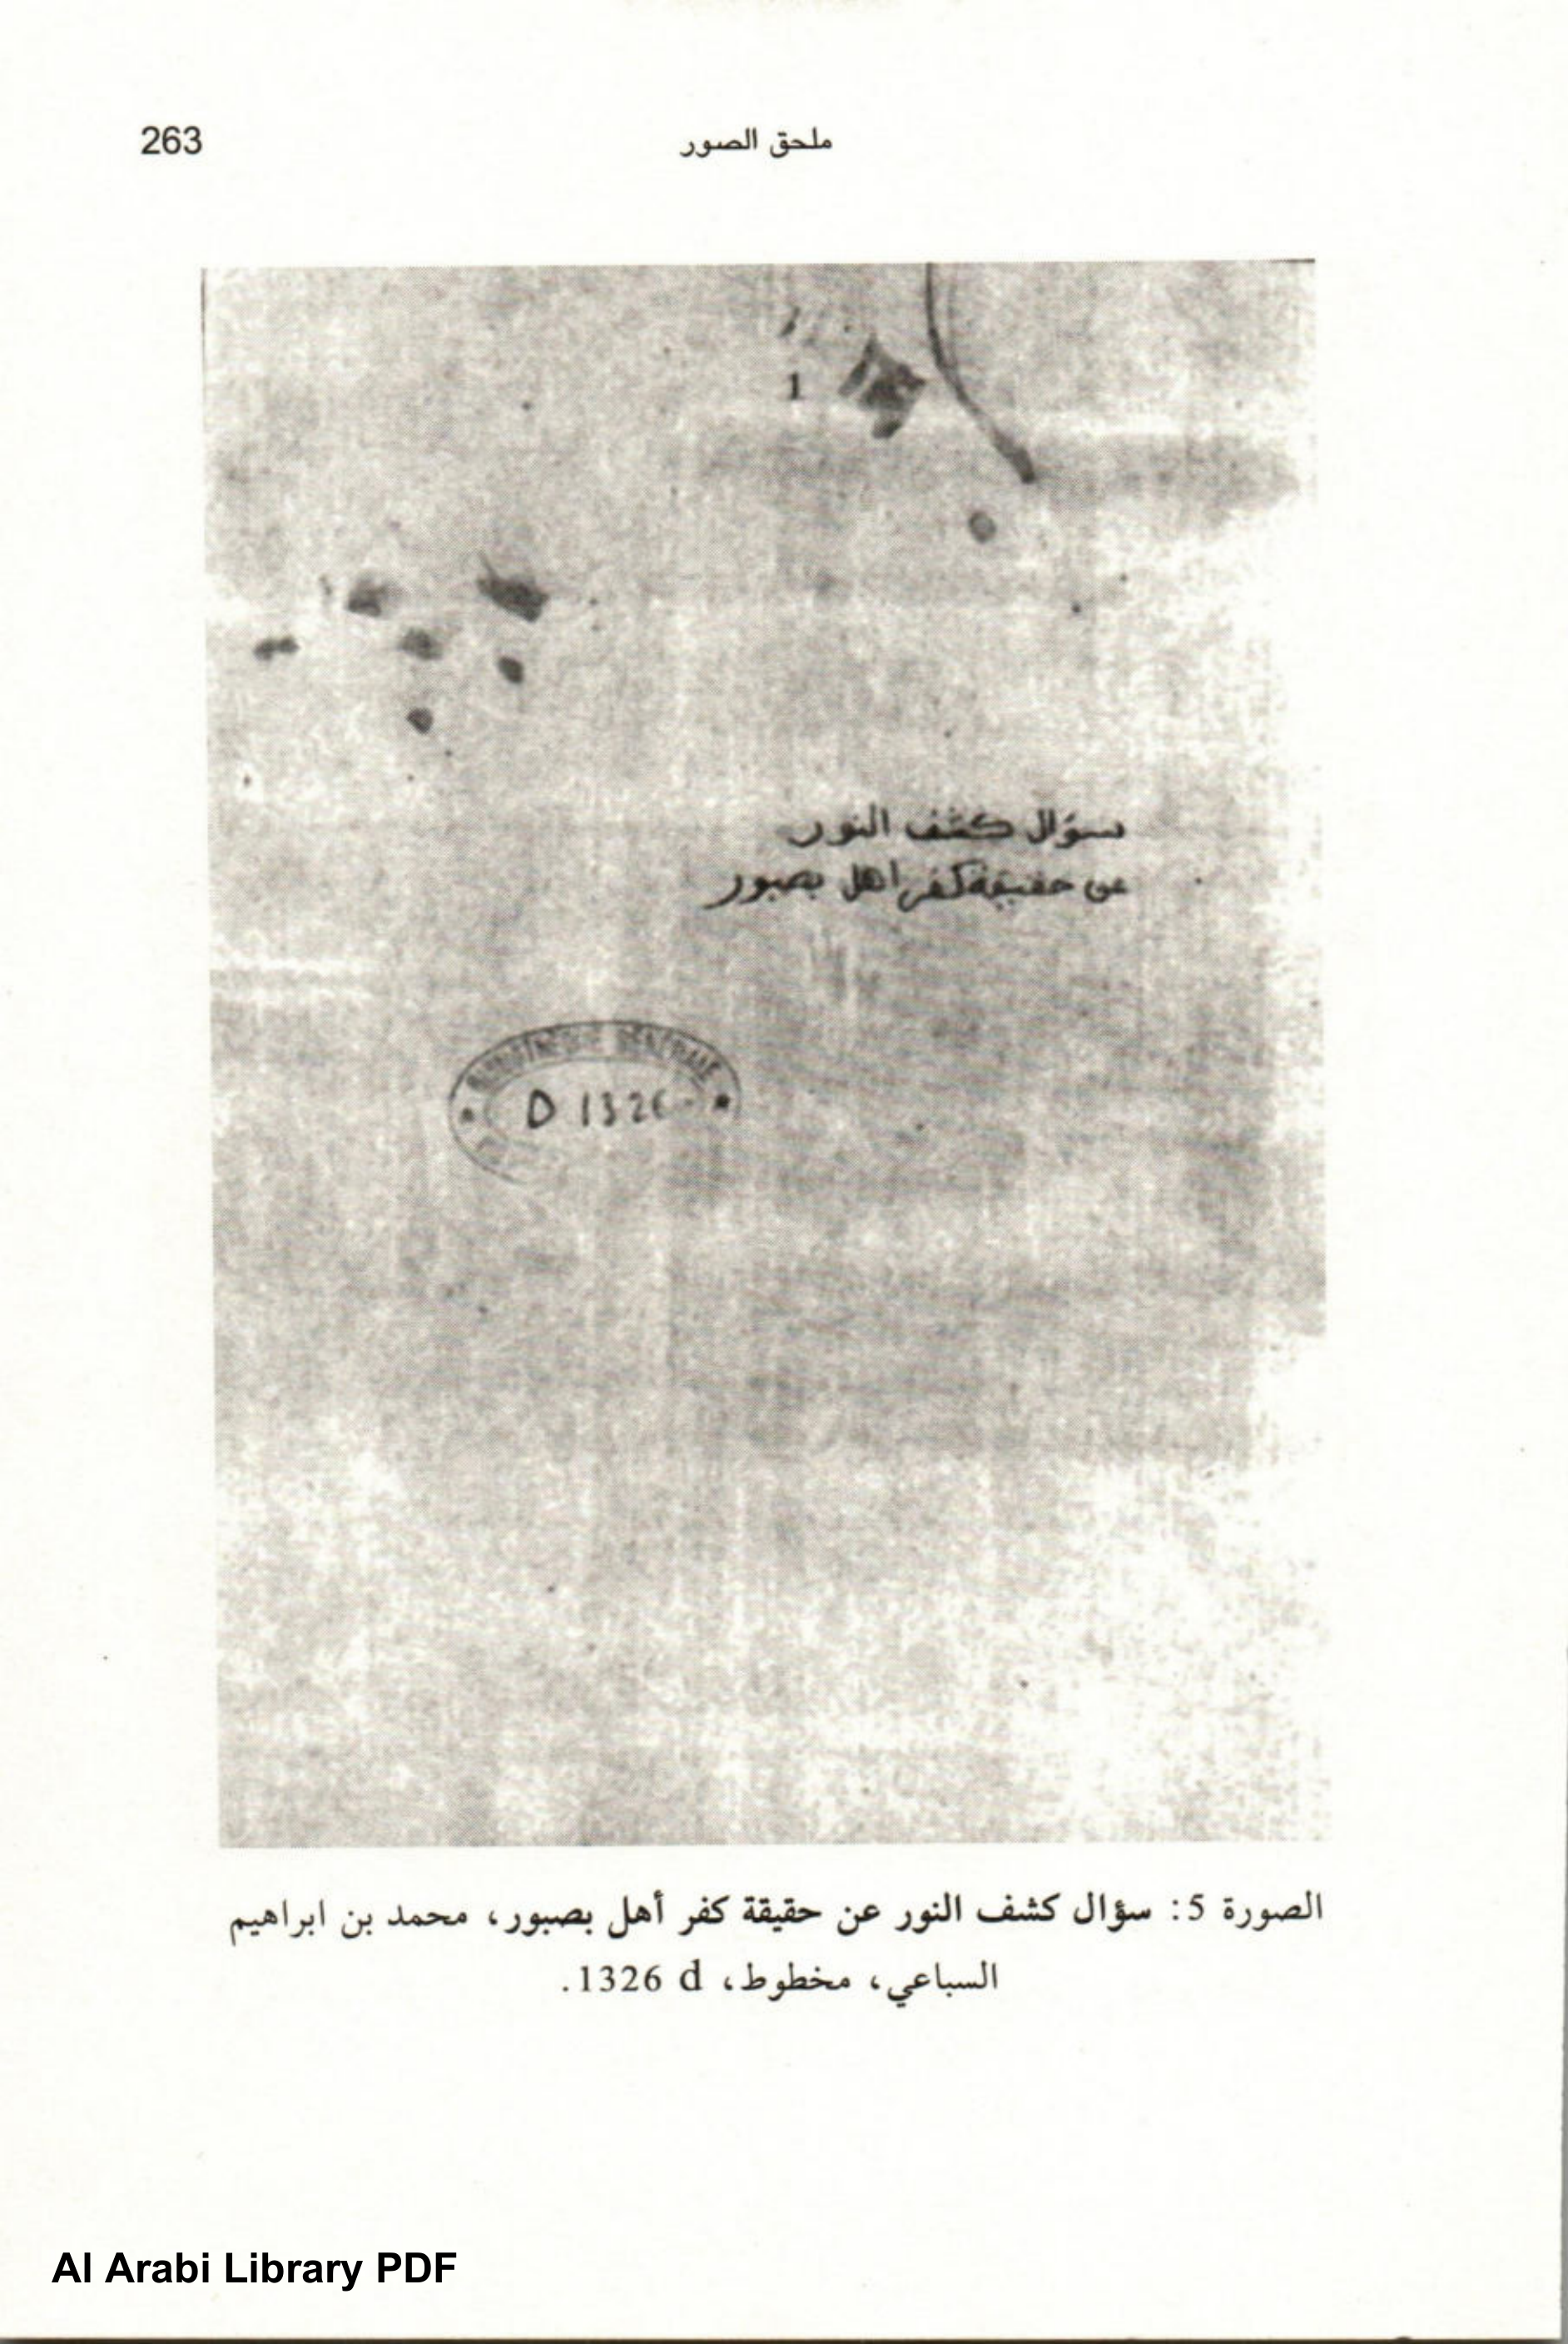 ملحق الصور
263
1
سؤال كشف النور
عن حقيقة كفر اهل بصبور
BIBLIOTHÈQUE GÉNÉRALE
D 1326
الصورة 5: سؤال كشف النور عن حقيقة كفر أهل بصبور، محمد بن ابراهيم
السباعي، مخطوط، 1326 d.
Al Arabi Library PDF